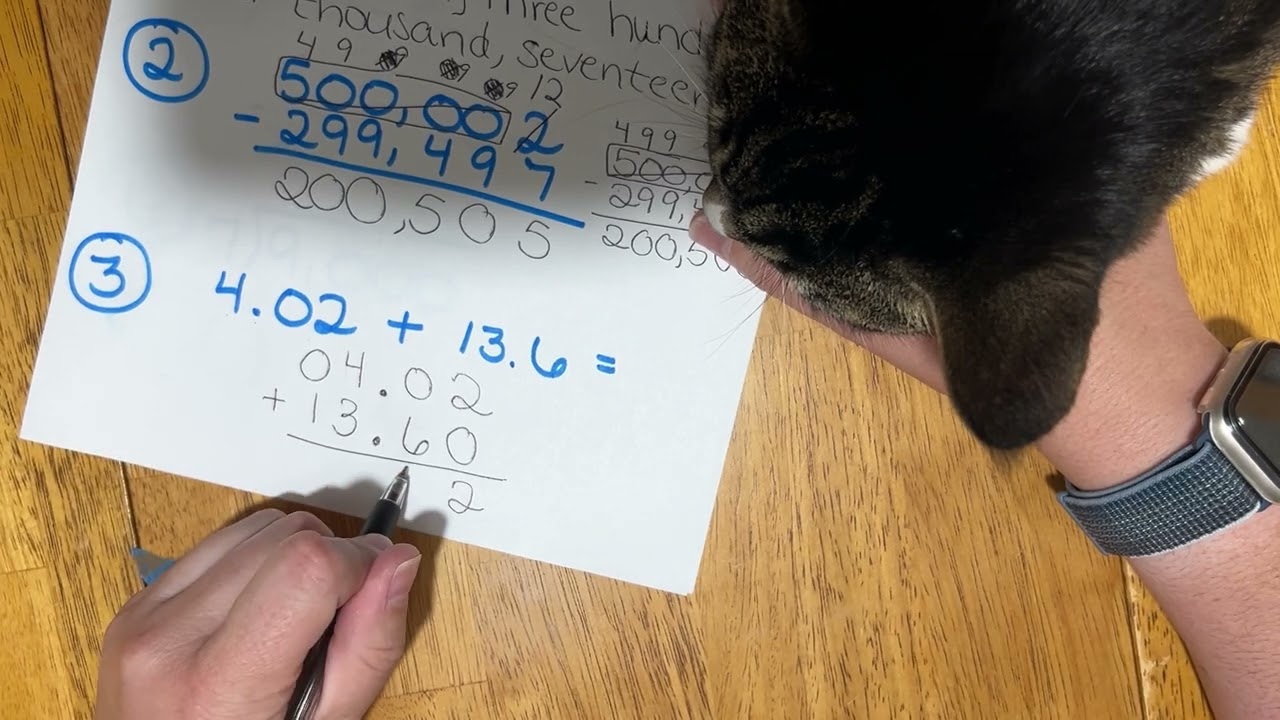 three hund
thousand, seventeen
4 9 9 9 9 12
② 500,002
- 299,497
200,505
499
500,
- 299,
200,50
③ 4.02 + 13.6 =
04.02
+ 13.60
2